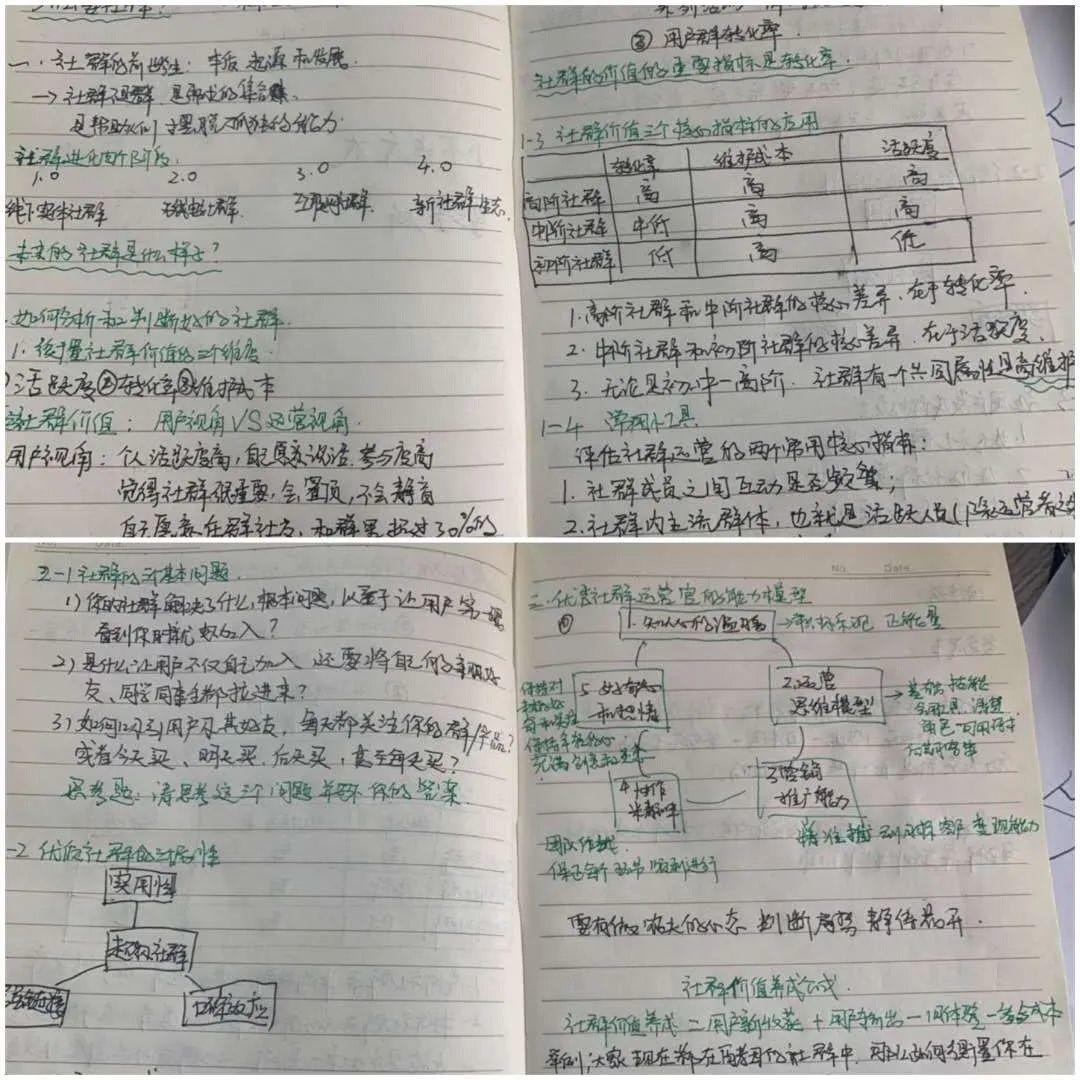 一. 社群的前世今生: 本质 起源 和发展.
→ 社群 是 的集合
是帮助我们 摆脱孤独的能力
社群进化四个阶段.
1.0 2.0 3.0 4.0
线下实体社群 社群. 互联网社群. 新社群生态.
未来的社群是什么样子?
如何分析和判断好的社群.
1. 衡量社群价值的三个维度
活跃度②转化率③维护成本
社群价值: 用户视角VS运营视角.
用户视角: 个人活跃度高, 自己愿意说话. 参与度高
觉得社群很重要, 会置顶, 不会静音
自己愿意在群社交, 和群里超过30%的
③ 用户群转化率.
社群的价值的重要指标是转化率.
1-3 社群价值三个核心指标的应用
转化率 维护成本 活跃度
高阶社群 高 高 高
中阶社群 中低 高 高
初阶社群 低 高 低
1. 高阶社群和中阶社群的核心差异. 在于转化率.
2. 中阶社群和初阶社群的核心差异. 在于活跃度.
3. 无论是初-中-高阶. 社群有一个共同属性是高维护
1-4 常用小工具
评估社群运营的两个常用核心指标:
1. 社群成员之间互动是否频繁;
2. 社群内主流群体, 也就是活跃人员(除运营者之
-1 社群的三个基本问题.
1) 你的社群解决了什么根本问题, 以至于让用户第一眼
看到你时就 加入?
2) 是什么让用户不仅自己加入 还要将自己的亲朋好
友、同学同事全都拉进来?
3) 如何吸引用户及其好友, 每天都关注你的群/产品?
或者今天买、明天买. 后天买, 甚至每天买?
思考题: 请思考这三个问题并写 你的答案.
-2 优质社群的三个属性
实用性
超级社群
强链接
口碑效应
No. Date
三. 优秀社群运营官的能力模型
1. 的温暖 → 积极乐观 正能量
5. 好奇心
和热情
2. 运营
思维模型
3. 营销
推广能力
4. 协作
团队作战.
保证每个环节顺利进行
精准 到 客户 变现能力
要有做 农夫的心态 判断局势 静待花开.
社群价值养成公式.
社群价值养成 = 用户新收获 + 用户新 - 旧体验 - 替换成本
举例; 大家现在都在 的社群中. 可以如何衡量你在